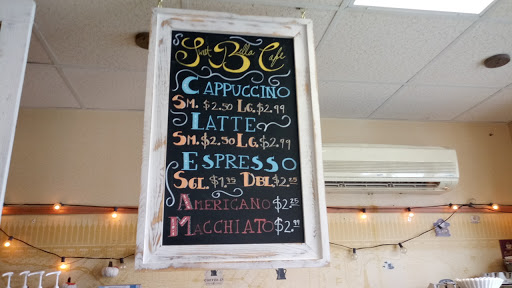 Just Bella Café
CAPPUCCINO
SM. $2.50 LG. $2.99
LATTE
SM. $2.50 LG. $2.99
ESPRESSO
SGL. $1.95 DBL $2.05
AMERICANO $2.25
MACCHIATO $2.99